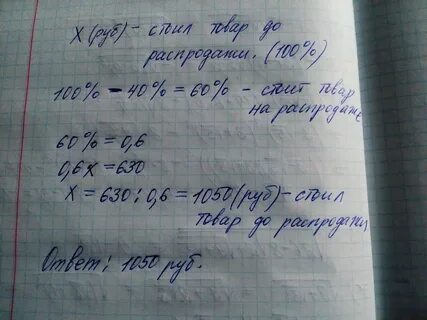 X (руб) - стоил товар до
распродажи. (100%)
100% - 40% = 60% - стоит товар
на распродаже
60% = 0,6
0,6x = 630
X = 630 : 0,6 = 1050 (руб) - стоил
товар до распродажи
Ответ: 1050 руб.